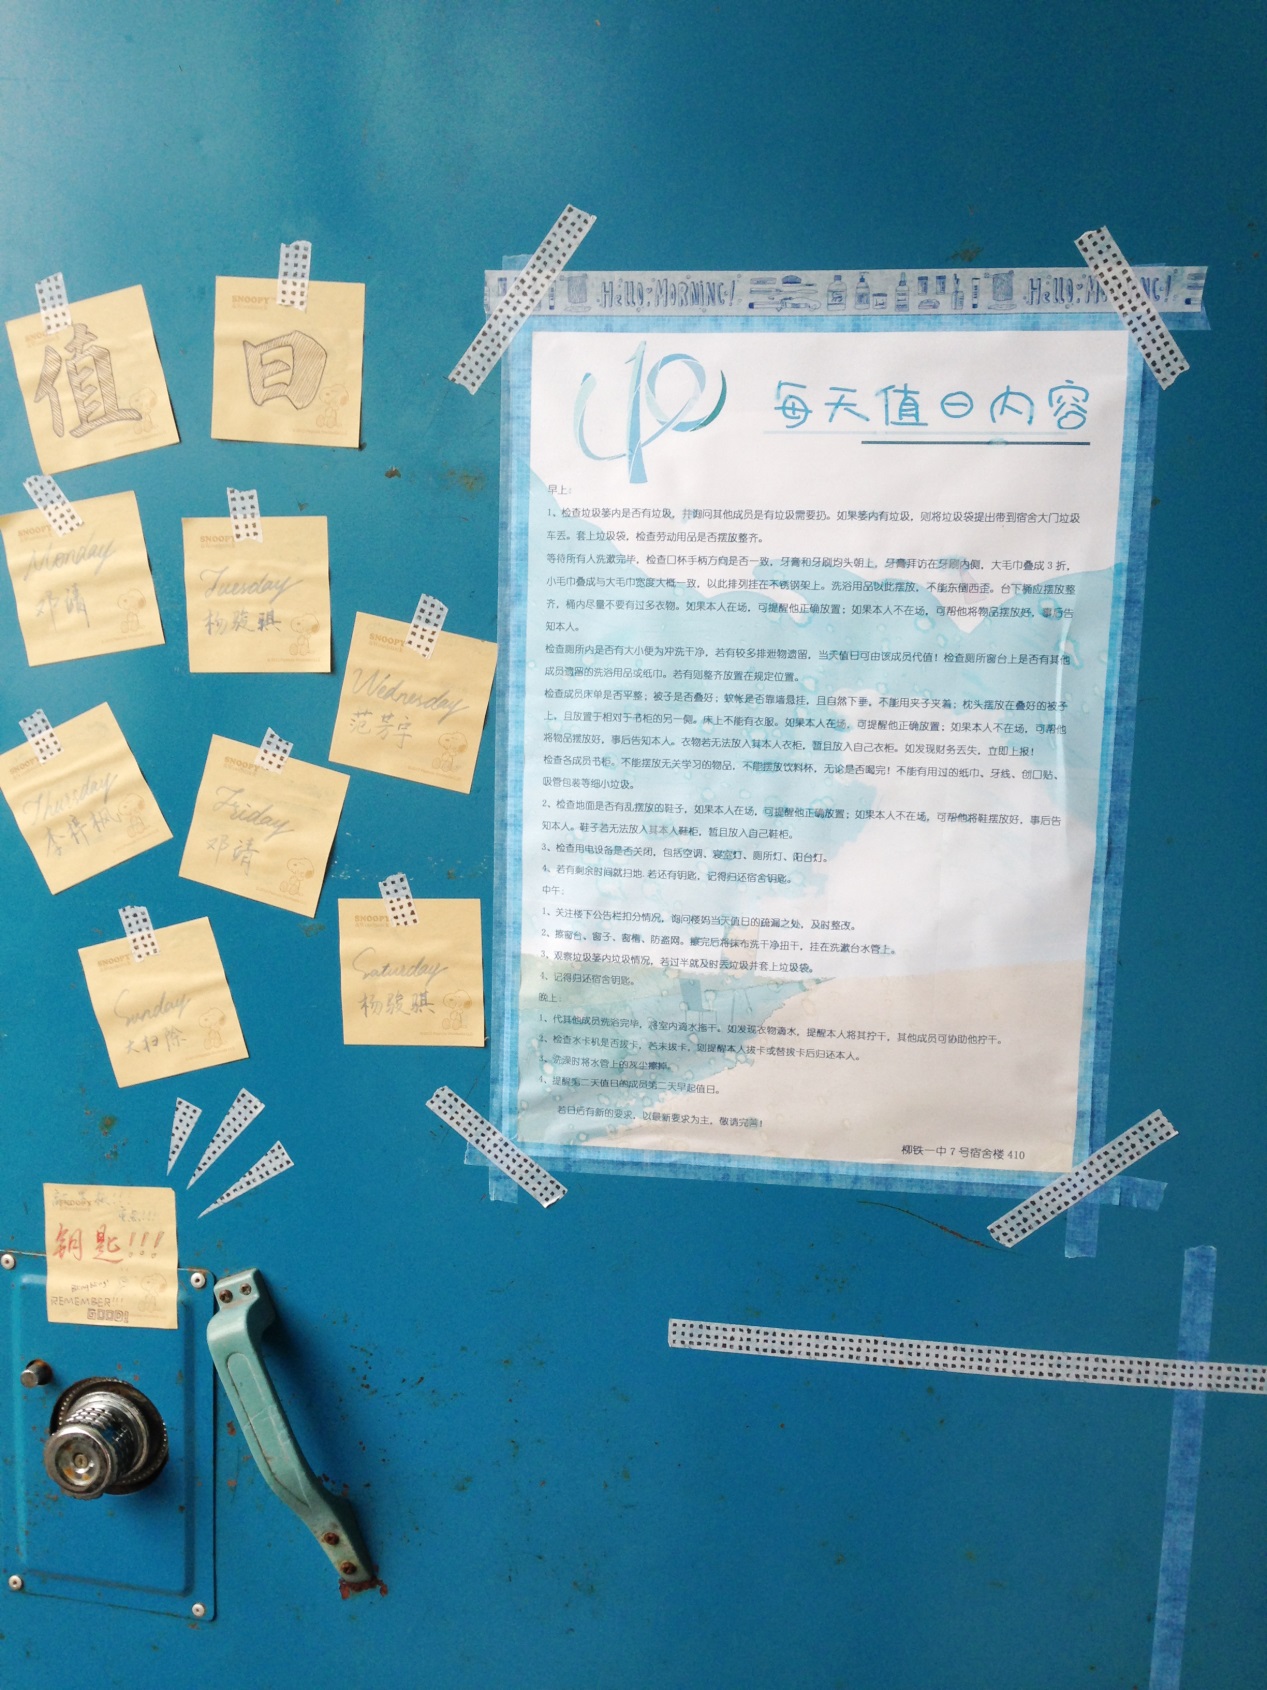 值
日
SNOOPY
Monday
邓清
SNOOPY
Tuesday
杨骏骐
SNOOPY
Wednesday
范芳宇
Thursday
李
SNOOPY
Friday
邓清
SNOOPY
Saturday
杨骏骐
SNOOPY
Sunday
大扫除
钥匙!!!
REMEMBER!!!
HELLO:MORNING!
HELLO:MORNING!
410
每天值日内容
早上:
1、检查垃圾篓内是否有垃圾,并询问其他成员是有垃圾需要扔。如果篓内有垃圾,则将垃圾袋提出带到宿舍大门垃圾
车丢。套上垃圾袋,检查劳动用品是否摆放整齐。
等待所有人洗漱完毕,检查口杯手柄方向是否一致,牙膏和牙刷均头朝上,牙膏拜访在牙刷内侧,大毛巾叠成3折,
小毛巾叠成与大毛巾宽度大概一致,以此排列挂在不锈钢架上。洗浴用品以此摆放,不能东倒西歪。台下桶应摆放整
齐,桶内尽量不要有过多衣物。如果本人在场,可提醒他正确放置;如果本人不在场,可帮他将物品摆放好,事后告
知本人。
检查厕所内是否有大小便为冲洗干净,若有较多排泄物遗留,当天值日可由该成员代值!检查厕所窗台上是否有其他
成员遗留的洗浴用品或纸巾。若有则整齐放置在规定位置。
检查成员床单是否平整;被子是否叠好;蚊帐是否靠墙悬挂,且自然下垂,不能用夹子夹着;枕头摆放在叠好的被子
上,且放置于相对于书柜的另一侧。床上不能有衣服。如果本人在场,可提醒他正确放置;如果本人不在场,可帮他
将物品摆放好,事后告知本人。衣物若无法放入其本人衣柜,暂且放入自己衣柜。如发现财务丢失,立即上报!
检查各成员书柜。不能摆放无关学习的物品,不能摆放饮料杯,无论是否喝完!不能有用过的纸巾、牙线、创口贴、
吸管包装等细小垃圾。
2、检查地面是否有乱摆放的鞋子,如果本人在场,可提醒他正确放置;如果本人不在场,可帮他将鞋摆放好,事后告
知本人。鞋子若无法放入其本人鞋柜,暂且放入自己鞋柜。
3、检查用电设备是否关闭,包括空调、寝室灯、厕所灯、阳台灯。
4、若有剩余时间就扫地.若还有钥匙,记得归还宿舍钥匙。
中午:
1、关注楼下公告栏扣分情况,询问楼妈当天值日的疏漏之处,及时整改。
2、擦窗台、窗子、窗槽、防盗网。擦完后将抹布洗干净扭干,挂在洗漱台水管上。
3、观察垃圾篓内垃圾情况,若过半就及时丢垃圾并套上垃圾袋。
4、记得归还宿舍钥匙。
晚上:
1、代其他成员洗浴完毕,将室内滴水拖干。如发现衣物滴水,提醒本人将其拧干,其他成员可协助他拧干。
2、检查水卡机是否拔卡,若未拔卡,则提醒本人拔卡或替拔卡后归还本人。
3、洗澡时将水管上的灰尘擦掉。
4、提醒第二天值日的成员第二天早起值日。
若日后有新的要求,以最新要求为主,敬请完善!
柳铁一中7号宿舍楼 410